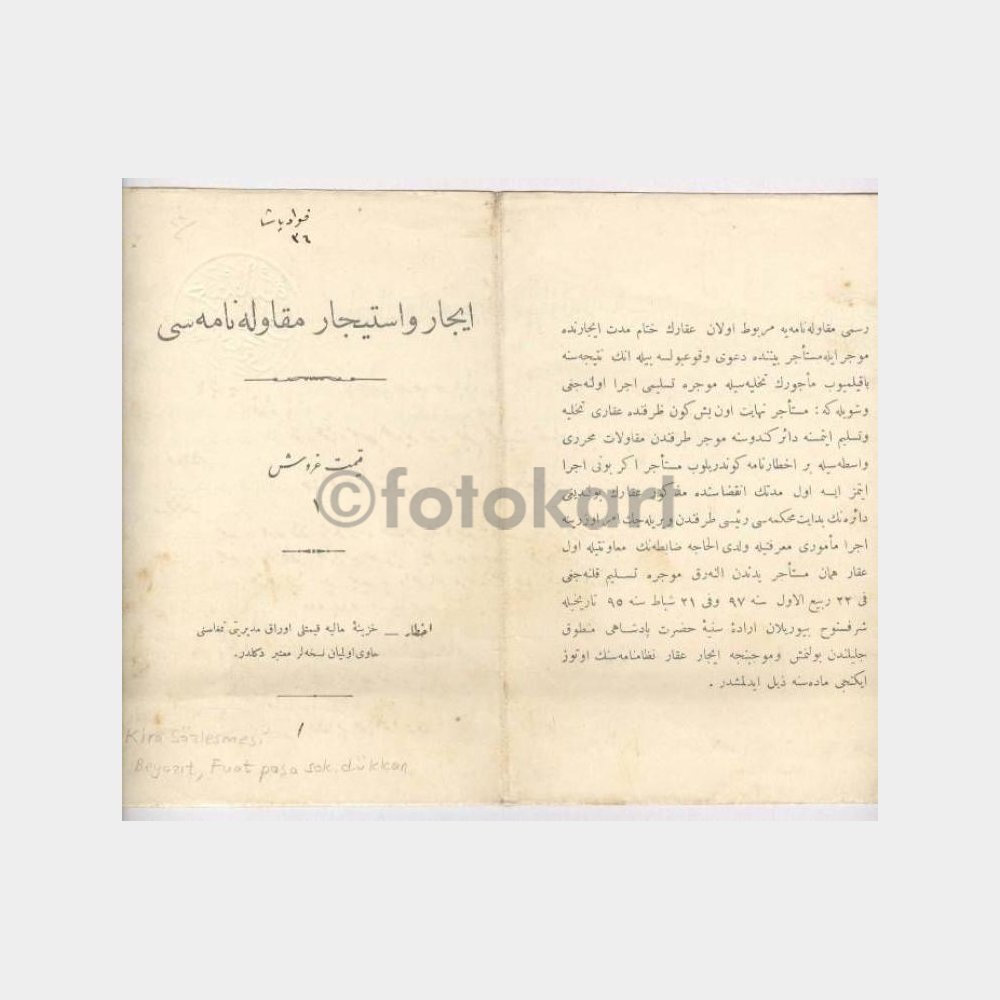 فواد پاشا
٣٦
ایجار و استیجار مقاوله‌نامه‌سی
قیمت غروش
١
اخطار — خزینهٔ مالیه قیمتلی اوراق مدیریتی تمغاسنی
حاوی اولمیان نسخه‌لر معتبر دکلدر.
١
Kira Sözleşmesi
Beyazıt, Fuat paşa sok. dükkan
رسمی مقاوله‌نامه‌یه مربوط اولان عقارك ختام مدت ایجارنده
موجر ایله مستأجر بیننده دعوی وقوعبولسه بیله انك نتیجه‌سنه
باقیلمیوب مأجورك تخلیه‌سیله موجره تسلیمی اجرا اولنه‌جغی
وشویله‌که: مستأجر نهایت اون بش کون ظرفنده عقاری تخلیه
وتسلیم ایتمسنه دائر کندوسنه موجر طرفندن مقاولات محرری
واسطه‌سیله بر اخطارنامه کوندریلوب مستأجر اکر بونی اجرا
ایتمز ایسه اول مدتك انقضاسنده مذکور عقارك بولندیغی
دائره‌نك بدایت محکمه‌سی رئیسی طرفندن ویریله‌جك امر اوزرینه
اجرا مأموری معرفتیله ولدی الحاجه ضابطه‌نك معاونتیله اول
عقار همان مستأجر یدندن النه‌رق موجره تسلیم قلنه‌جغی
فی ٢٣ ربیع الاول سنه ٩٧ وفی ٢١ شباط سنه ٩٥ تاریخیله
شرفسنوح بیوریلان ارادهٔ سنیهٔ حضرت پادشاهی منطوق
جلیلندن بولنمش وموجبنجه ایجار عقار نظامنامه‌سنك اوتوز
ایکنجی ماده‌سنه ذیل ایدلمشدر.
©fotokart